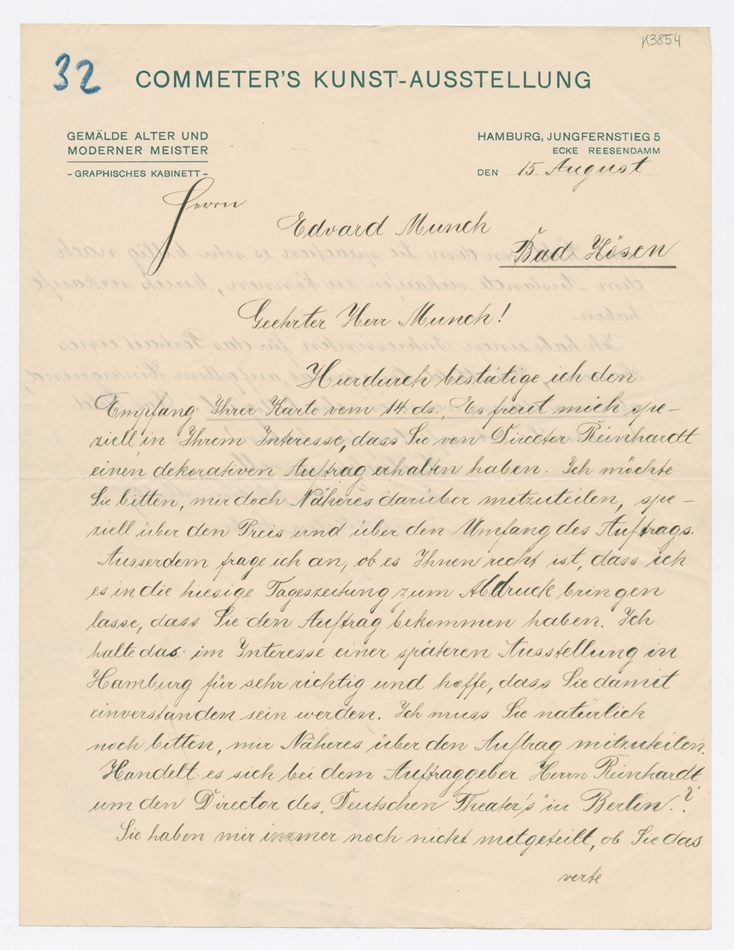 K3854
32
COMMETER'S KUNST-AUSSTELLUNG
GEMÄLDE ALTER UND
MODERNER MEISTER
- GRAPHISCHES KABINETT -
HAMBURG, JUNGFERNSTIEG 5
ECKE REESENDAMM
DEN 15. August
Herrn
Edvard Munch
Bad Kösen
Geehrter Herr Munch!
Hierdurch bestätige ich den
Empfang Ihrer Karte vom 14. ds. Es freut mich spe-
ziell, in Ihrem Interesse, dass Sie von Director Reinhardt
einen dekorativen Auftrag erhalten haben. Ich möchte
Sie bitten, mir doch Näheres darüber mitzuteilen, spe-
ziell über den Preis und über den Umfang des Auftrags.
Ausserdem frage ich an, ob es Ihnen recht ist, dass ich
es in die hiesige Tageszeitung zum Abdruck bringen
lasse, dass Sie den Auftrag bekommen haben. Ich
halte das im Interesse einer späteren Ausstellung in
Hamburg für sehr richtig und hoffe, dass Sie damit
einverstanden sein werden. Ich muss Sie natürlich
noch bitten, mir Näheres über den Auftrag mitzuteilen.
Handelt es sich bei dem Auftraggeber Herrn Reinhardt
um den Director des "Deutschen Theater's" in Berlin?
Sie haben mir immer noch nicht mitgeteilt, ob Sie das
verte